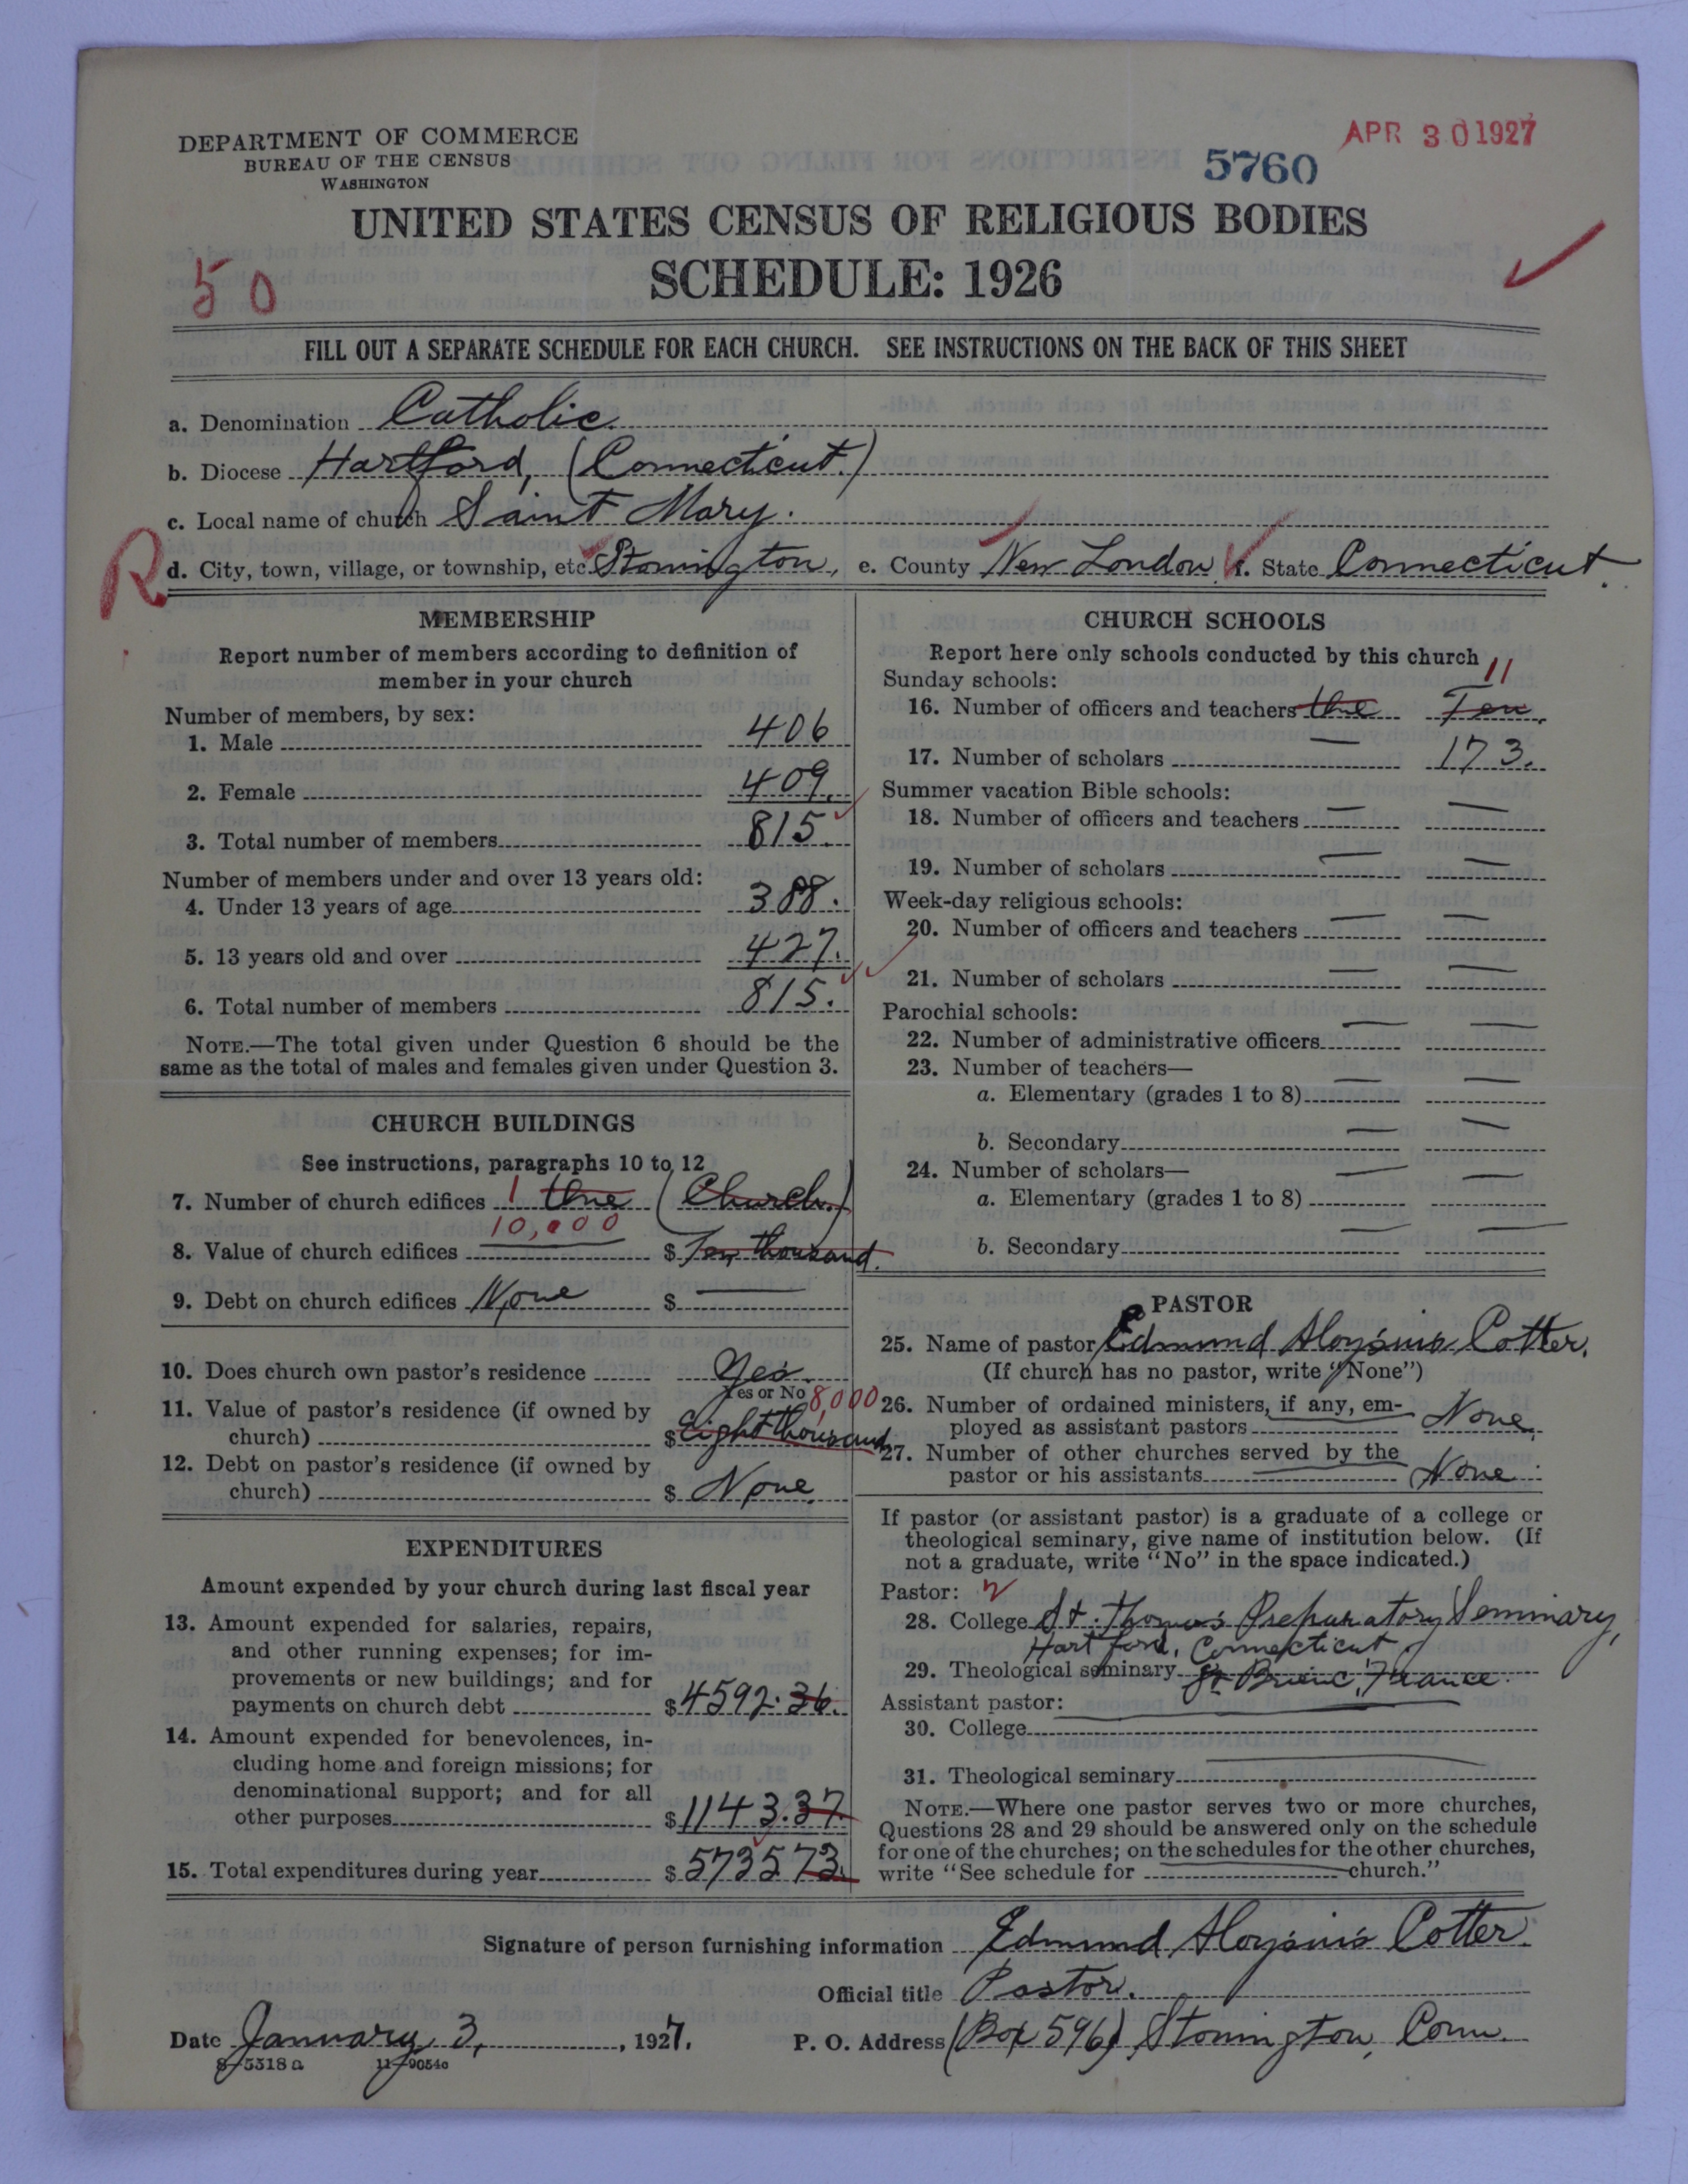 DEPARTMENT OF COMMERCE
BUREAU OF THE CENSUS
WASHINGTON
APR 30 1927
5760
UNITED STATES CENSUS OF RELIGIOUS BODIES
SCHEDULE: 1926
50
FILL OUT A SEPARATE SCHEDULE FOR EACH CHURCH. SEE INSTRUCTIONS ON THE BACK OF THIS SHEET
a. Denomination Catholic
b. Diocese Hartford, (Connecticut.)
c. Local name of church Saint Mary.
R
d. City, town, village, or township, etc. Stonington, e. County New London f. State Connecticut.
MEMBERSHIP
Report number of members according to definition of
member in your church
Number of members, by sex:
1. Male 406
2. Female 409.
3. Total number of members 815.
Number of members under and over 13 years old:
4. Under 13 years of age 388.
5. 13 years old and over 427.
6. Total number of members 815.
NOTE.—The total given under Question 6 should be the
same as the total of males and females given under Question 3.
CHURCH BUILDINGS
See instructions, paragraphs 10 to 12
7. Number of church edifices 1 One (Church.)
10,000
8. Value of church edifices $ Ten thousand.
9. Debt on church edifices None $ —
10. Does church own pastor's residence Yes.
Yes or No 8,000
11. Value of pastor's residence (if owned by
church) $ Eight thousand
12. Debt on pastor's residence (if owned by
church) $ None.
EXPENDITURES
Amount expended by your church during last fiscal year
13. Amount expended for salaries, repairs,
and other running expenses; for im-
provements or new buildings; and for
payments on church debt $ 4592.36.
14. Amount expended for benevolences, in-
cluding home and foreign missions; for
denominational support; and for all
other purposes $ 1143.37.
15. Total expenditures during year $ 5735 73.
CHURCH SCHOOLS
Report here only schools conducted by this church
11
Sunday schools:
16. Number of officers and teachers Ten.
17. Number of scholars — 173.
Summer vacation Bible schools:
18. Number of officers and teachers — —
19. Number of scholars — —
Week-day religious schools:
20. Number of officers and teachers — —
21. Number of scholars — —
Parochial schools:
22. Number of administrative officers — —
23. Number of teachers—
a. Elementary (grades 1 to 8) — —
b. Secondary — —
24. Number of scholars—
a. Elementary (grades 1 to 8) — —
b. Secondary — —
PASTOR
25. Name of pastor Edmund Aloysius Cotter.
(If church has no pastor, write "None")
26. Number of ordained ministers, if any, em-
ployed as assistant pastors None.
27. Number of other churches served by the
pastor or his assistants None
If pastor (or assistant pastor) is a graduate of a college or
theological seminary, give name of institution below. (If
not a graduate, write "No" in the space indicated.)
Pastor:
28. College St. Thomas's Preparatory Seminary,
Hartford, Connecticut.
29. Theological seminary St Brieuc, France.
Assistant pastor:
30. College
31. Theological seminary
NOTE.—Where one pastor serves two or more churches,
Questions 28 and 29 should be answered only on the schedule
for one of the churches; on the schedules for the other churches,
write "See schedule for church."
Signature of person furnishing information Edmund Aloysius Cotter.
Official title Pastor.
Date January 3, 1927. P. O. Address (Box 596) Stonington, Conn.
8-5318a 11-9054c